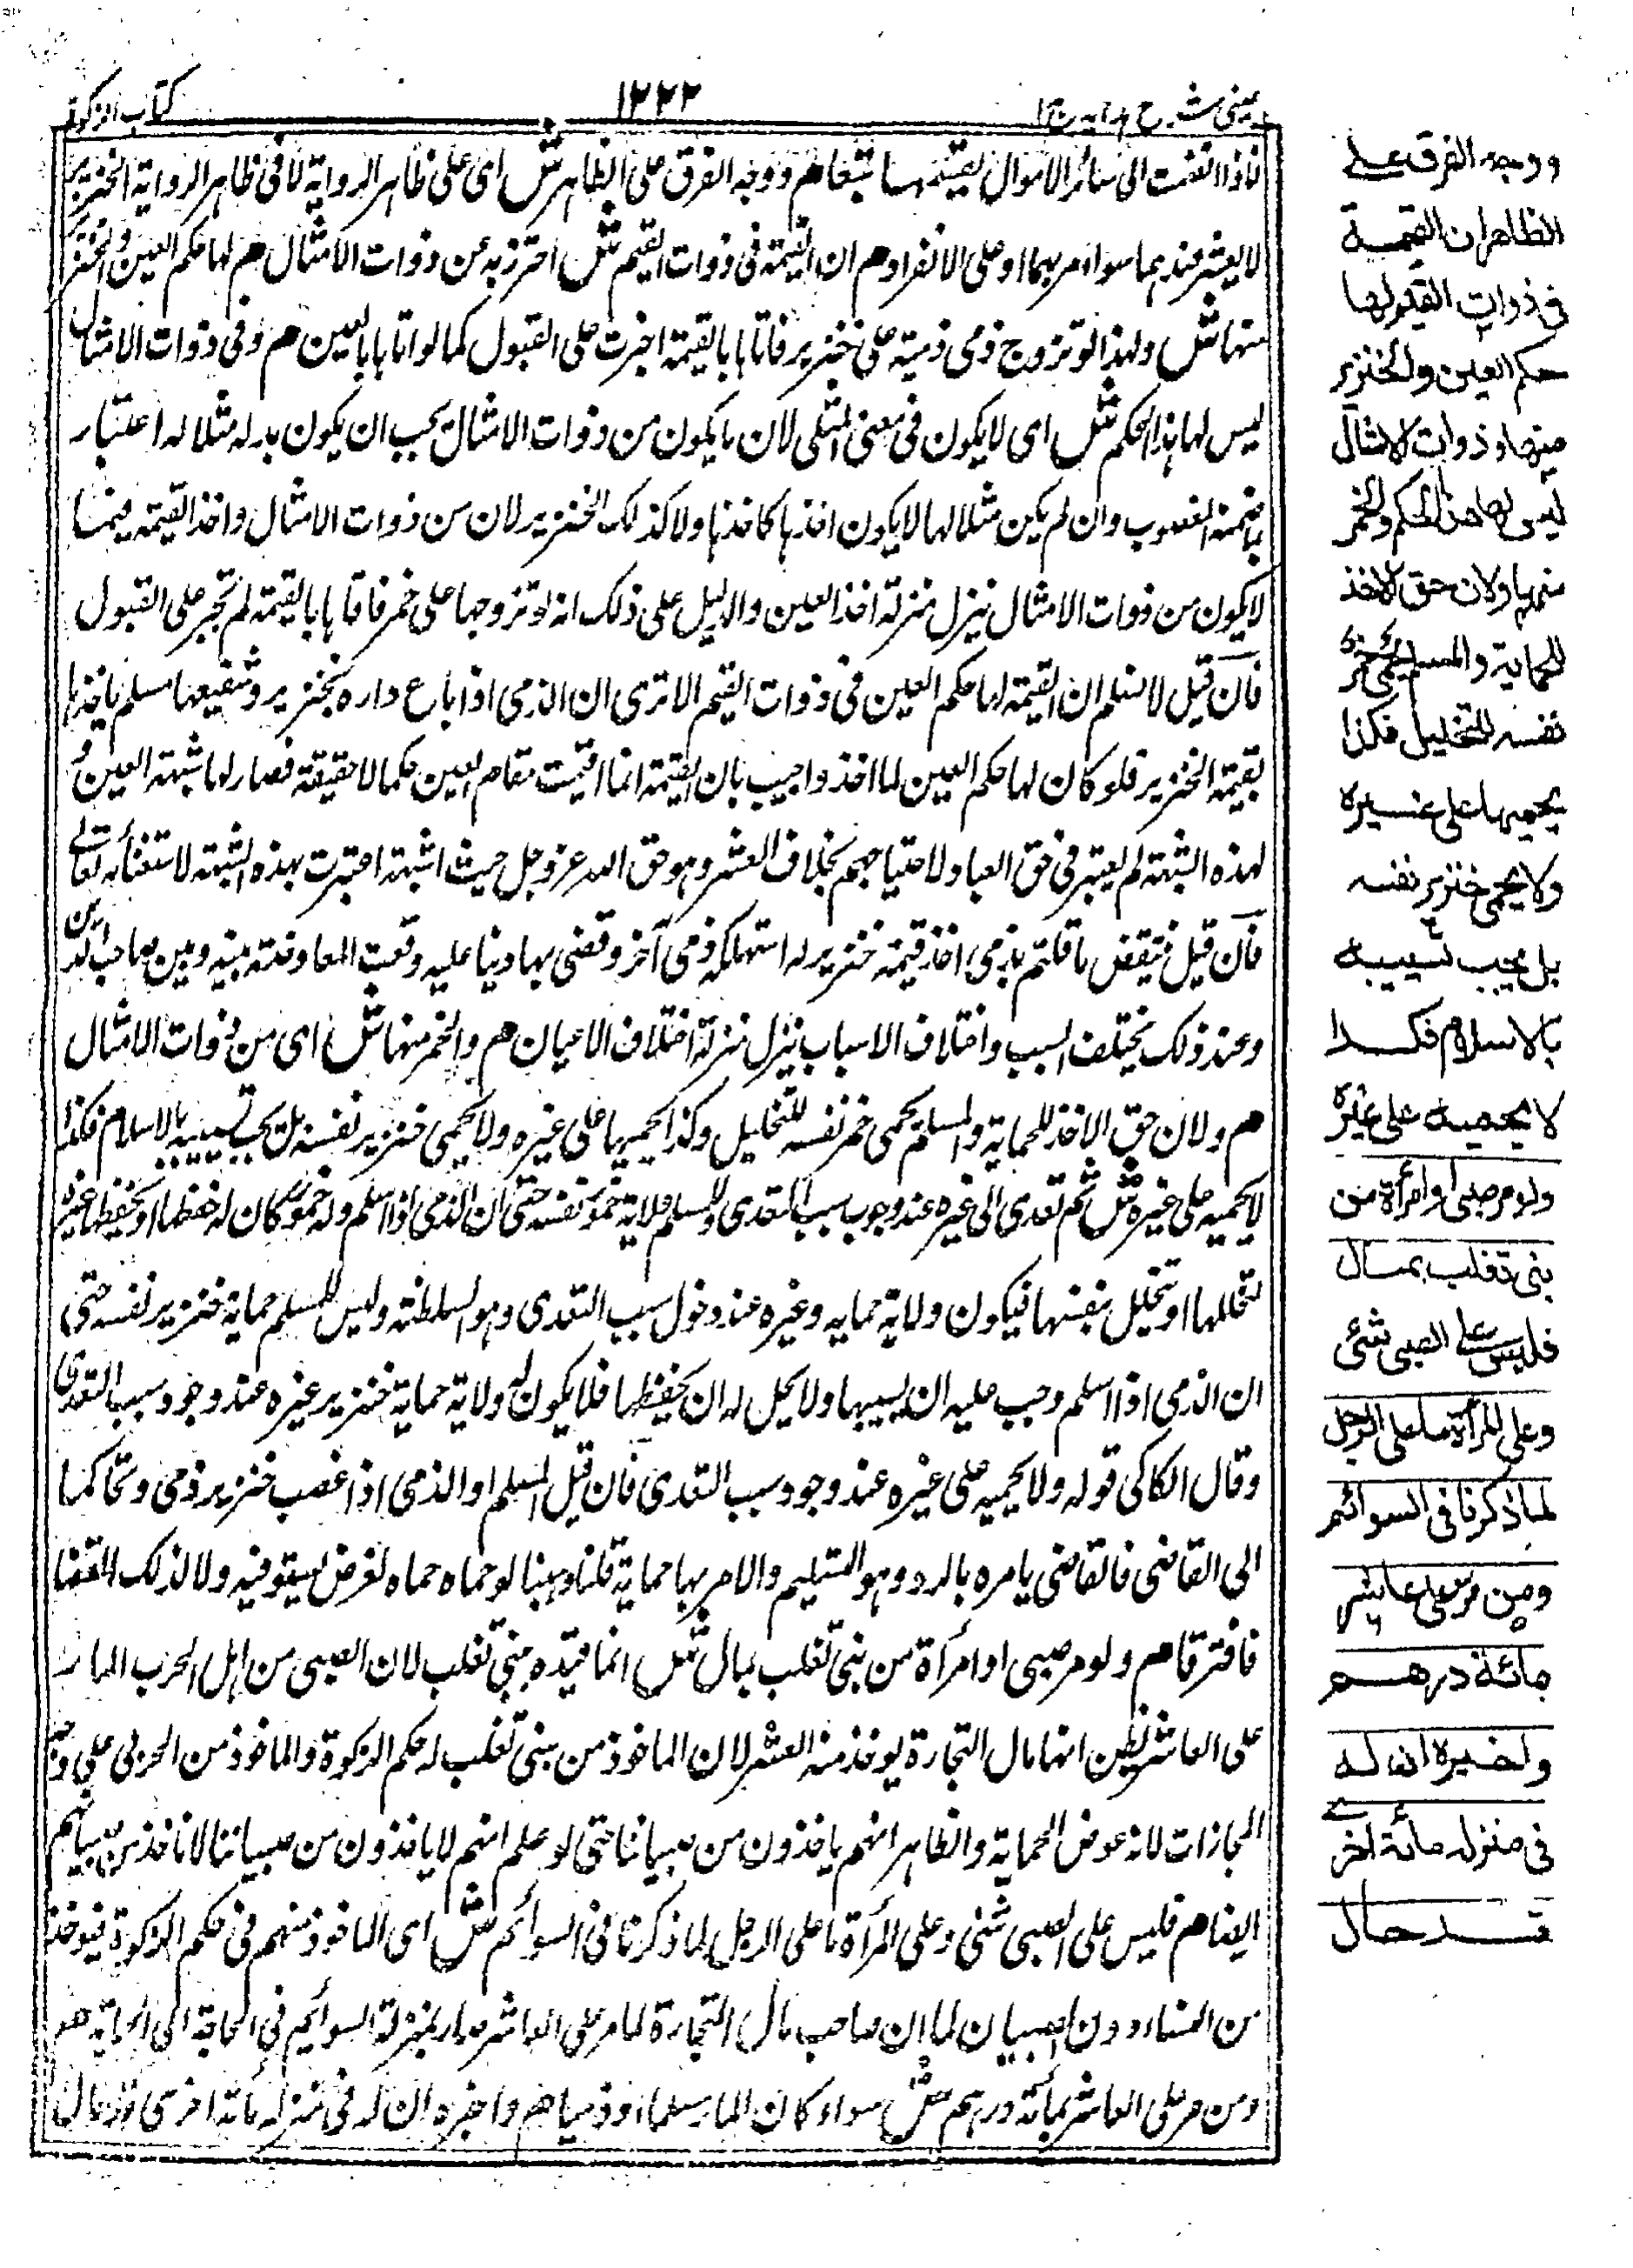 عينى شرح هدايه ج ١
١٢٢٢
كتاب الزكوة
فاذا انضمت الى سائر الاموال بقيمتها تبعا هم ووجه الفرق على الظاهر ش اى على ظاهر الرواية لا فى ظاهر الرواية الخنزير
لا يعتبر عندهما سواء مر بهما او على الانفراد هم ان القيمة فى ذوات القيم ش احترز به عن ذوات الامثال هم لها حكم العين والخنزير
منها ش ولهذا لو تزوج ذمى ذمية على خنزير فاتاها بالقيمة اجبرت على القبول كما لو اتاها بالعين هم وفى ذوات الامثال
ليس لها هذا الحكم ش اى لا يكون فى معنى المثلى لان ما يكون من ذوات الامثال يجب ان يكون بدله مثلا له اعتبار
بالقيمة المغصوب وان لم يكن مثلا لها لا يكون اخذها كاخذها ولا كذلك الخنزير لان من ذوات الامثال واخذ القيمة فيما
لا يكون من ذوات الامثال ينزل منزلة اخذ العين والدليل على ذلك انه لو تزوجها على خمر فاتاها بالقيمة لم تجبر على القبول
فان قيل لا نسلم ان القيمة لها حكم العين فى ذوات القيم الا ترى ان الذمى اذا باع داره بخنزير وشفيعها مسلم ياخذها
بقيمة الخنزير فلو كان لها حكم العين لما اخذ واجيب بان القيمة انما اقيمت مقام العين حكما لا حقيقة فصار لها شبهة العين و
لهذه الشبهة لم يعتبر فى حق العباد لاحتياجهم بخلاف العشر وهو حق الله عز وجل حيث اشبهة اعتبرت بهذه الشبهة لاستغنائه تعالى
فان قيل ينتقض ما قلتم بذمى اخذ قيمة خنزير له استهلكه ذمى آخر وقضى بها دينا عليه وقعت المعاوضة بينه وبين صاحب الدين
وعند ذلك يختلف السبب واختلاف الاسباب ينزل منزلة اختلاف الاعيان هم والخمر منها ش اى من ذوات الامثال
هم ولان حق الاخذ للحماية والمسلم يحمى خمر نفسه للتخليل وكذا يحميها على غيره ولا يحمى خنزير نفسه بل يجب تسييبه بالاسلام فكذا
لا يحميه على غيره ش ثم تعدى الى غيره عند وجوب سبب التعدى وللمسلم ولاية خمر نفسه حتى ان الذمى اذا اسلم وله خمور كان له حفظها او يحفظها غيره
لتخللها او تتخلل بنفسها فيكون ولاية حمايه وغيره عند دخول سبب التعدى وهو السلطنة وليس للمسلم حماية خنزير نفسه حتى
ان الذمى اذا اسلم وجب عليه ان يسيبها ولا يحل له ان يحفظها فلا يكون له ولاية حماية خنزير غيره عند وجود سبب التعدى
وقال الكاكى قوله ولا يحميه على غيره عند وجود سبب التعدى فان قيل المسلم او الذمى اذا غصب خنزير ذمى وتحاكما
الى القاضى فالقاضى يامره بالرد وهو التسليم والامر بها حماية قلنا وهنا لو حماه حماه لغرض يستوفيه ولا لذلك القضا
فافترقا هم ولو مر صبى او امرأة من بنى تغلب بمال ش انما قيده ببنى تغلب لان الصبى من اهل الحرب المار
على العاشر يظن انها مال التجارة يوخذ منه العشر لان الماخوذ من بنى تغلب له حكم الزكوة والماخوذ من الحربى على وجه
المجازات لانه عوض الحماية والظاهر انهم ياخذون من صبياننا حتى لو علم انهم لا ياخذون من صبياننا لا ناخذ من صبيانهم
ايضا هم فليس على الصبى شئ وعلى المرأة ما على الرجل لما ذكرنا فى السوائم ش اى الماخوذ منهم فى حكم الزكوة فيوخذ
من النساء دون الصبيان لما ان صاحب مال التجارة لما مر على العاشر صار بمنزلة السوائم فى الحاجة الى الحماية هم
ومن مر على العاشر بمائة درهم ش سواء كان المار مسلما او ذميا هم واخبره ان له فى منزله مائة اخرى وقد حال
ووجه الفرق على
الظاهر ان القيمة
فى ذوات القيم لها
حكم العين والخنزير
منها وذوات الامثال
ليس لها هذا الحكم والخمر
منها ولان حق الاخذ
للحماية والمسلم يحمى خمر
نفسه للتخليل فكذا
يحميها على غيره
ولا يحمى خنزير نفسه
بل يجب تسييبه
بالاسلام فكذا
لا يحميه على غيره
ولو مر صبى او امرأة من
بنى تغلب بمال
فليس على الصبى شئ
وعلى المرأة ما على الرجل
لما ذكرنا فى السوائم
ومن مر على عاشر
بمائة درهم
واخبره ان له
فى منزله مائة اخرى
قد حال